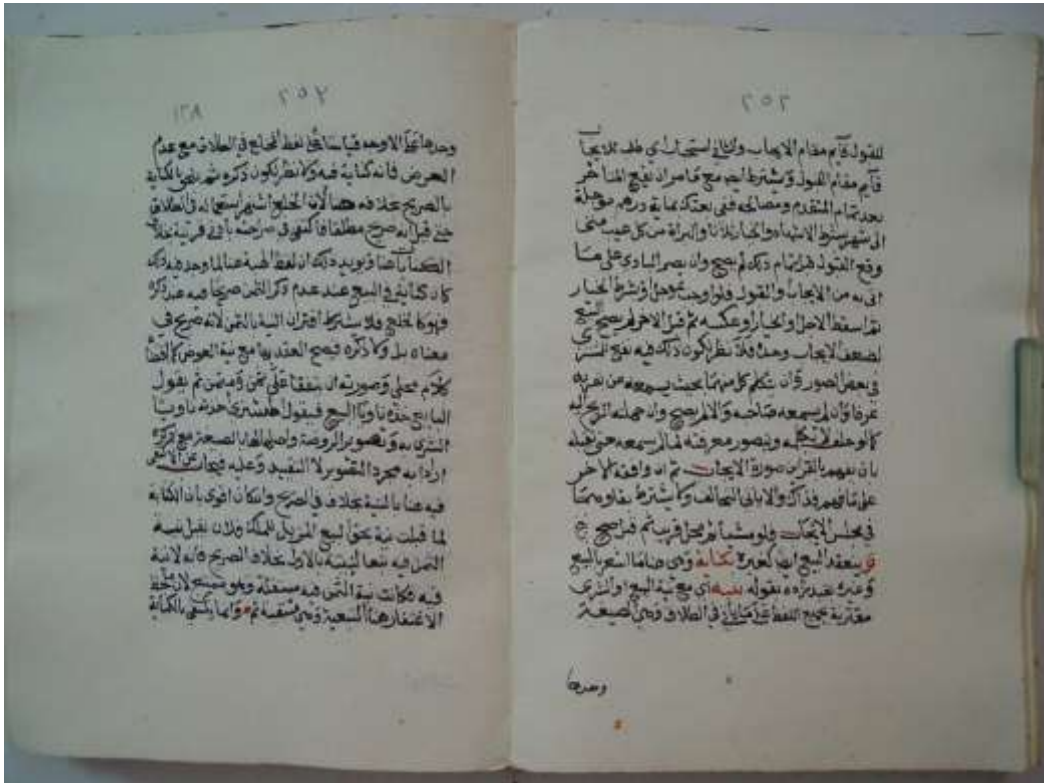 ٢٥٢
للقول قايم مقام الايجاب وان في استيجاب اي طلب الايجاب
قايم مقام القبول ويشترط مع مامر ان يقع المتاخر
بعد تمام المتقدم ومصالحه ففي بعتك بماية درهم موجلة
الى شهر بشرط الاشهاد والخيار ثلاثا والبراة من كل عيب متى
وقع القبول قبل تمام ذلك لم يصح وان يصر البادى على ما
اتى به من الايجاب والقبول فلو اوجب بموجل او شرط الخيار
ثم اسقط الاجل او الخيار او عكسه ثم قبل الاخر لم يصح البيع
لضعف الايجاب وحده فلا نظر لكون ذلك فيه نفع المشتري
في بعض الصور وان يتكلم كل منهما بحيث يسمعه من بقربه
عرفا وان لم يسمعه صاحبه والا لم يصح وان حملته الريح اليه
كما لو حلف لا يكلمه ويتصور معرفته لما لم يسمعه حتى يقبله
بان يفهم بالقراين صورة الايجاب ثم ان وافقه الاخر
على ما فهم فذاك والا ياتي التحالف ولا يشترط بقاوهما
في مجلس الايجاب فلو مشيا لمحل قريب ثم قبل صح
ينعقد البيع ايضا كغيره بكناية
وغيره بقوله بنية اي مع نية البيع او الشرى
مقترنة بجميع اللفظ على ما ياتي في الطلاق وهي الصيغة
وحدها
٢٥٧
١٢٨
وحدها على الاوجه قياسا على لفظ الخلع في الطلاق مع عدم
العوض فانه كناية فيه ولا نظر لكون ذكره ثم بالكناية
بالصريح بخلافه هنا لان الخلع اشهر استعماله في الطلاق
حتى قيل انه صريح مطلقا فاكتفى في صراحته بادنى قرينة بخلاف
الكنايات هنا ويويد ذلك ان لفظ الهبة هنا لما وجد فيه ذلك
كان كناية في البيع عند عدم ذكر الثمن صريحا فيه عند ذكره
فهو كالخلع فلا يشترط اقتران النية بالثمن لانه صريح في
معناه بل ولا ذكره فيصح العقد بها مع نية العوض كما
كلام وصورته ان يتفقا على ثمن ومثمن ثم يقول
البايع خذه ناويا البيع فيقول المشترى اخذته ناويا
الشرى به وتصوير الروضة واصلها لهذه الصيغة مع ذكره
ارادا به مجرد التصوير لا التقييد وعليه
فيه هنا بالنية بخلافه في الصريح وان كان اقوى بان الكناية
لما قبلت نية نحو البيع المزيل للملك فلان تقبل نية
الثمن فيه تبعا لنيته بالاولى بخلاف الصريح فانه لا نية
فيه فكانت نية الثمن فيه مستقلة وهو ممتنع لان
الاغتفار هنا التبعية وهي منتفية ثم وانما بالكناية